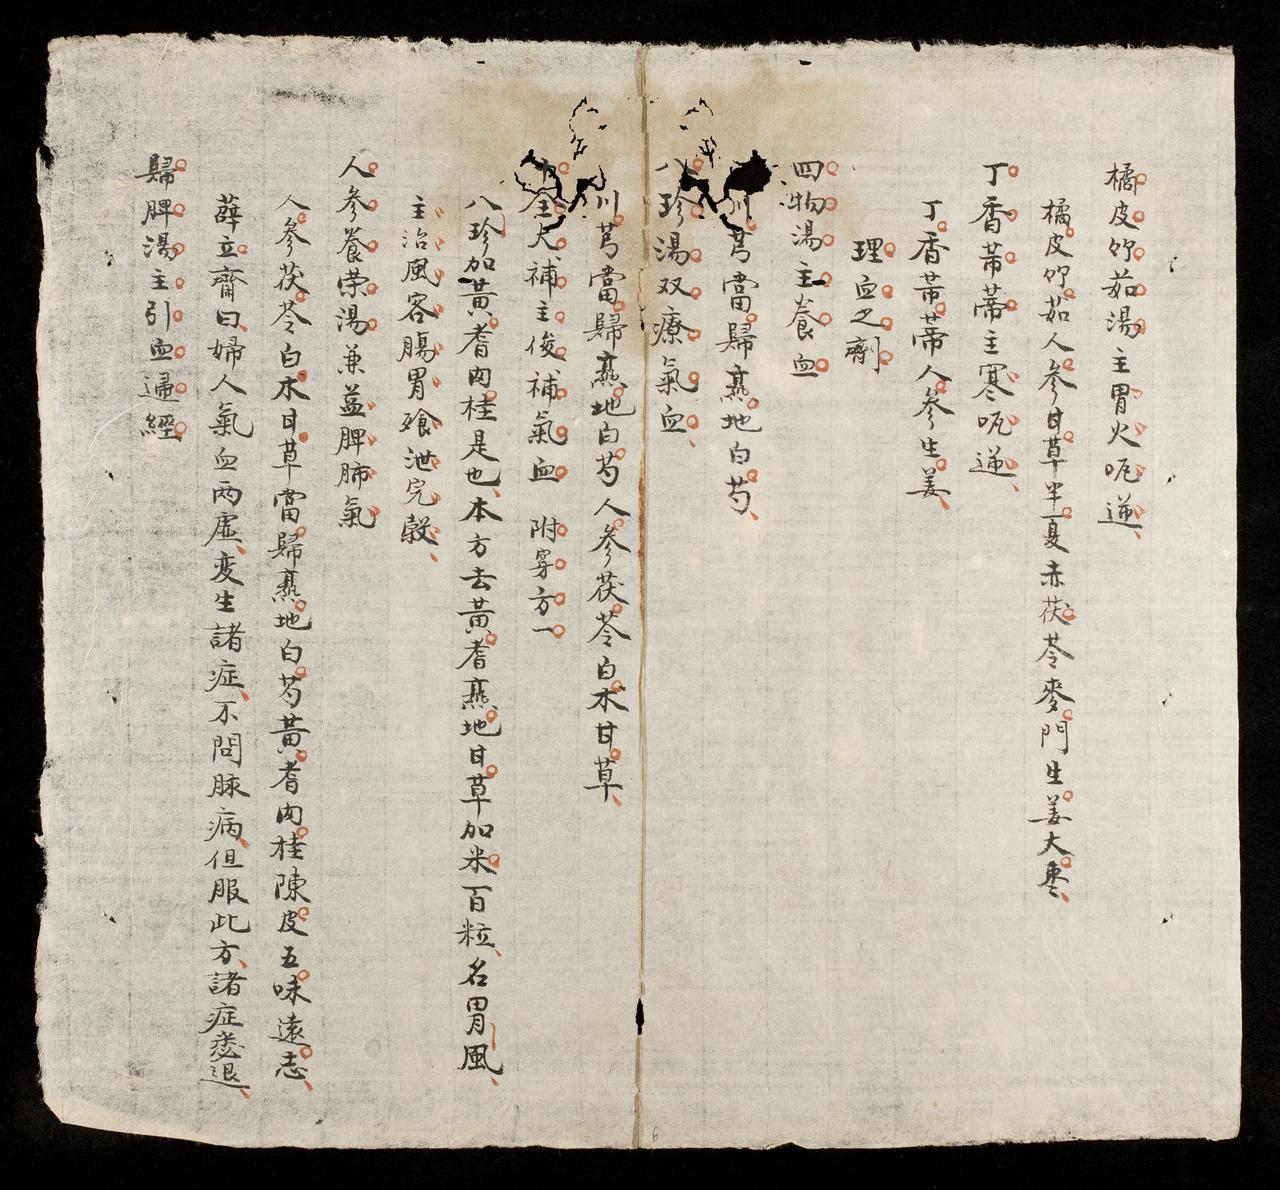 橘皮竹茹湯主胃火呃逆
橘皮竹茹人參甘草半夏赤茯苓麥門生姜大棗
丁香芾蒂主寒呃逆
丁香芾蒂人參生姜
理血之劑
四物湯主養血
川芎當歸熹地白芍
八珍湯双療氣血
川芎當歸熹地白芍人參茯苓白朮甘草
十全大補主俊補氣血 附穿方一
八珍加黃耆肉桂是也本方去黃耆熹地甘草加米百粒名胃風
主治風客腸胃飱泄完穀
人參養荣湯兼益脾肺氣
人參茯苓白朮甘草當歸熹地白芍黃耆肉桂陳皮五味遠志
薛立齋曰婦人氣血兩虛変生諸症不問脉病但服此方諸症悉退
歸脾湯主引血歸經